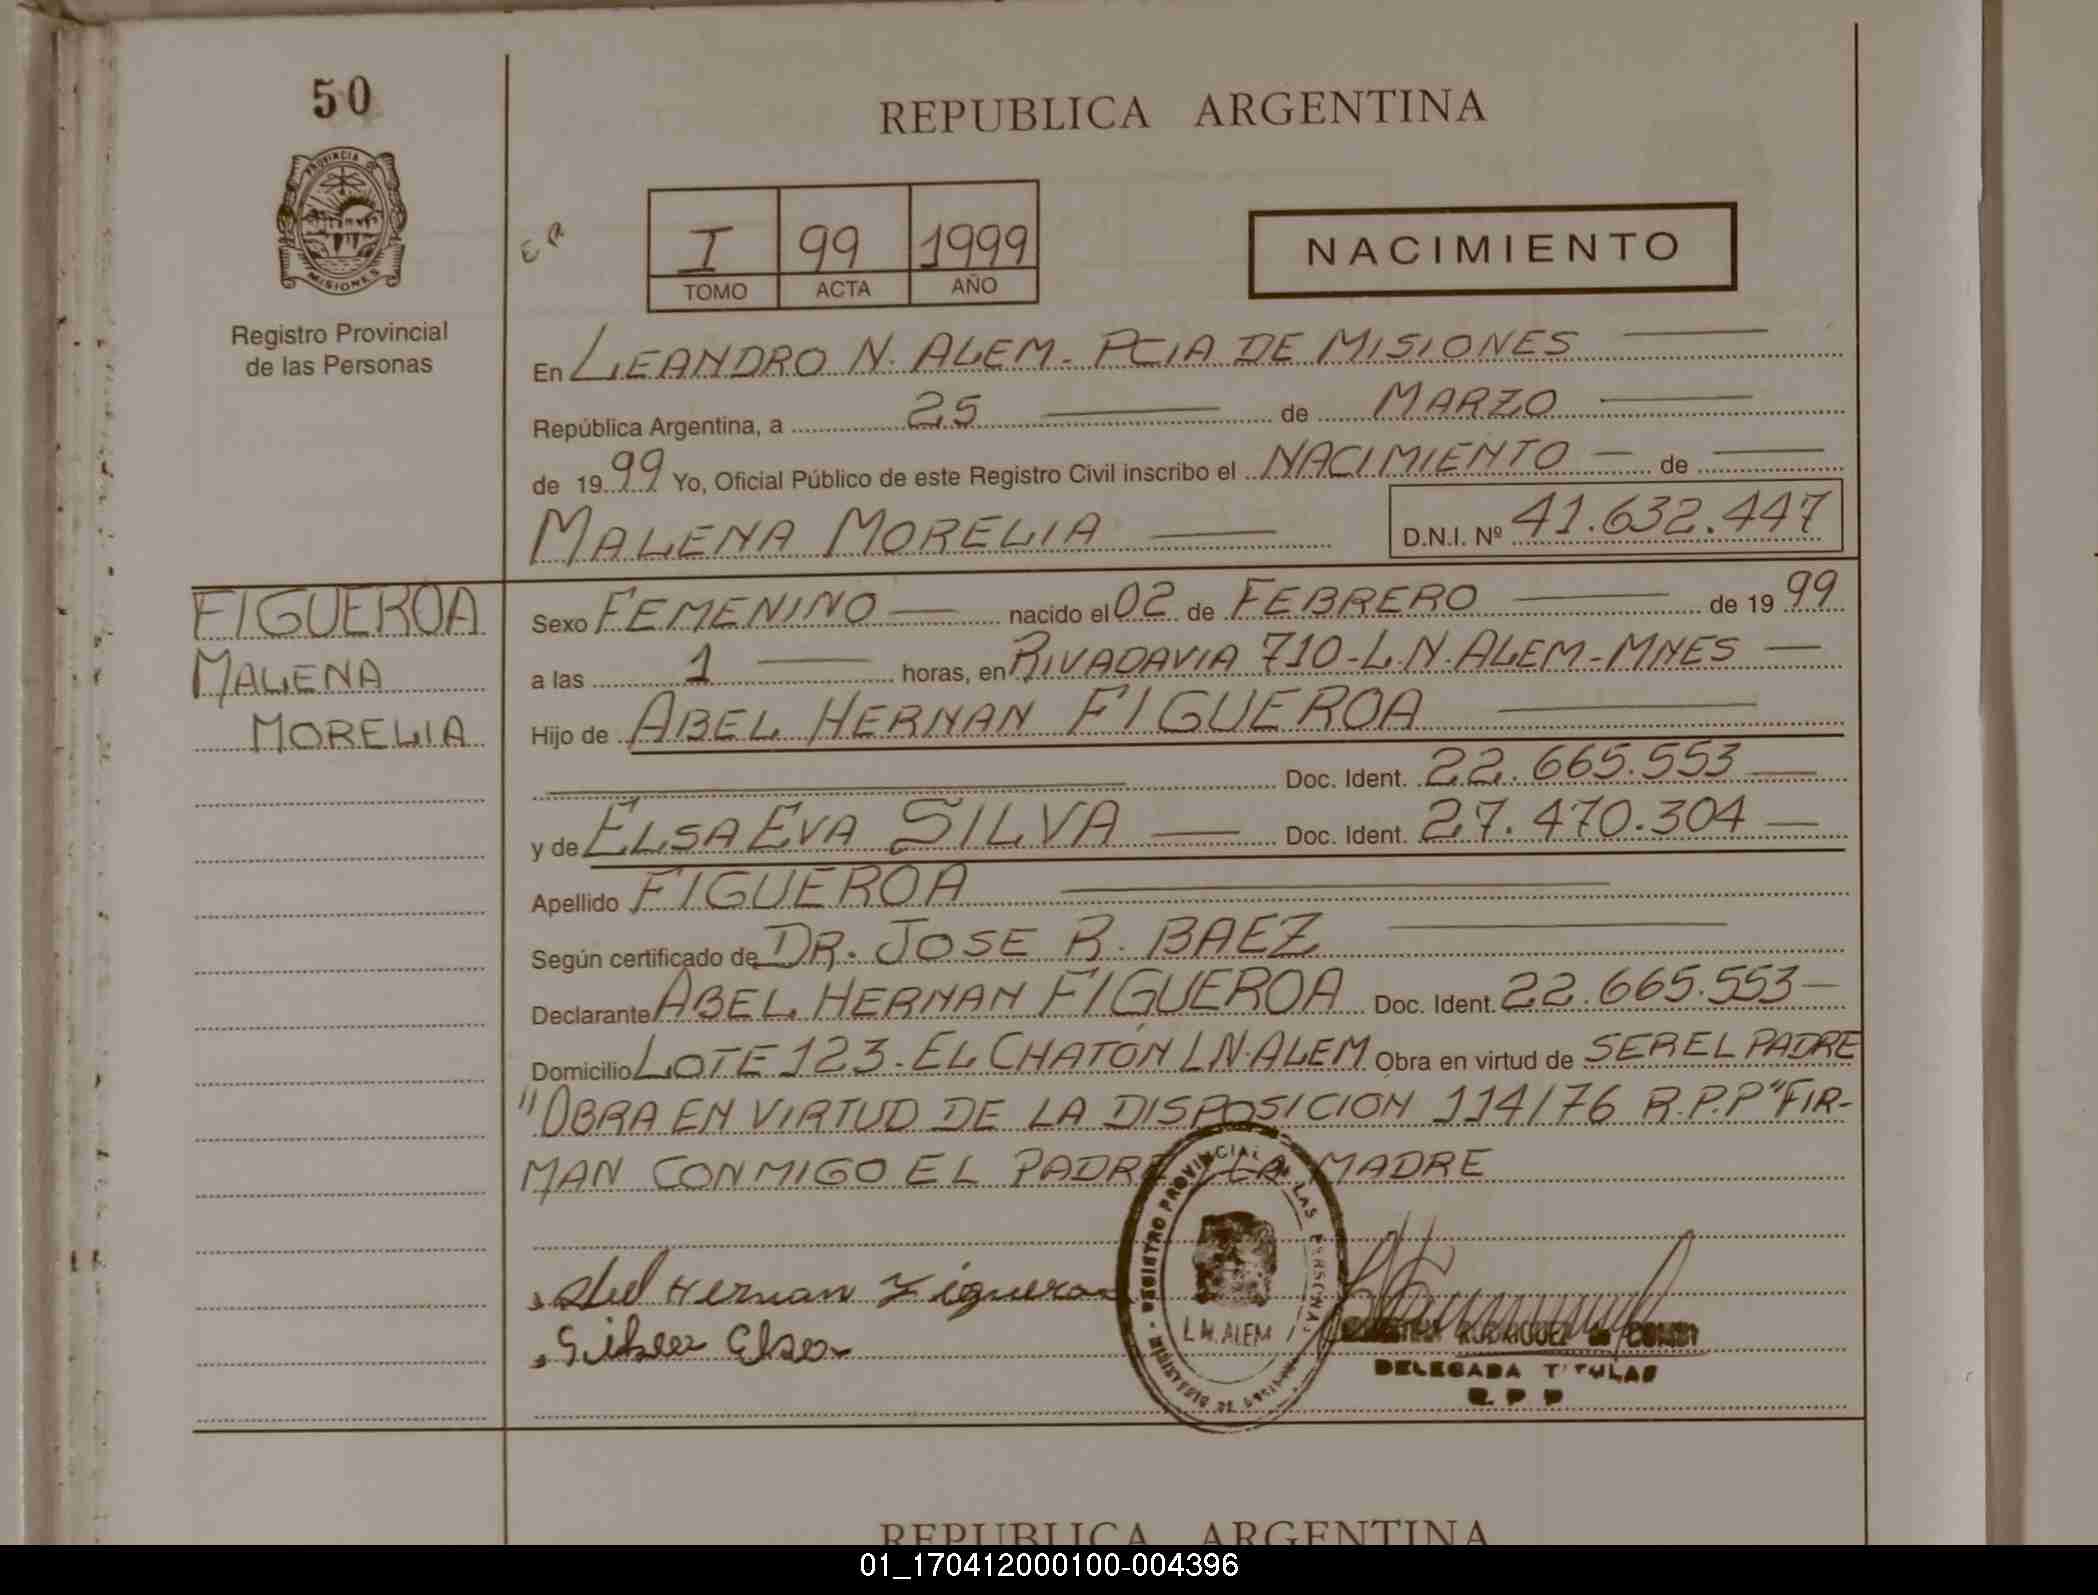 50
REPUBLICA ARGENTINA
PROVINCIA DE
MISIONES
Registro Provincial
de las Personas
I 99 1999
TOMO ACTA AÑO
NACIMIENTO
En LEANDRO N. ALEM - PCIA DE MISIONES
República Argentina, a 25 de MARZO
de 1999 Yo, Oficial Público de este Registro Civil inscribo el NACIMIENTO de
MALENA MORELIA D.N.I. Nº 41.632.447
FIGUEROA
MALENA
MORELIA
Sexo FEMENINO nacido el 02 de FEBRERO de 1999
a las 1 horas, en RIVADAVIA 710-L.N.ALEM-MNES
Hijo de ABEL HERNAN FIGUEROA
Doc. Ident. 22.665.553
y de ELSA EVA SILVA Doc. Ident. 27.470.304
Apellido FIGUEROA
Según certificado de DR. JOSE R. BAEZ
Declarante ABEL HERNAN FIGUEROA Doc. Ident. 22.665.553
Domicilio LOTE 123-EL CHATÓN L.N.ALEM Obra en virtud de SER EL PADRE
"OBRA EN VIRTUD DE LA DISPOSICIÓN 114/76 R.P.P" FIR-
MAN CONMIGO EL PADRE Y LA MADRE
Abel Hernan Figueroa
Silva Elsa
REGISTRO PROVINCIAL DE LAS PERSONAS
L.N.ALEM
RODRIGUEZ de
DELEGADA TITULAR
R. P. P
REPUBLICA ARGENTINA
01_170412000100-004396